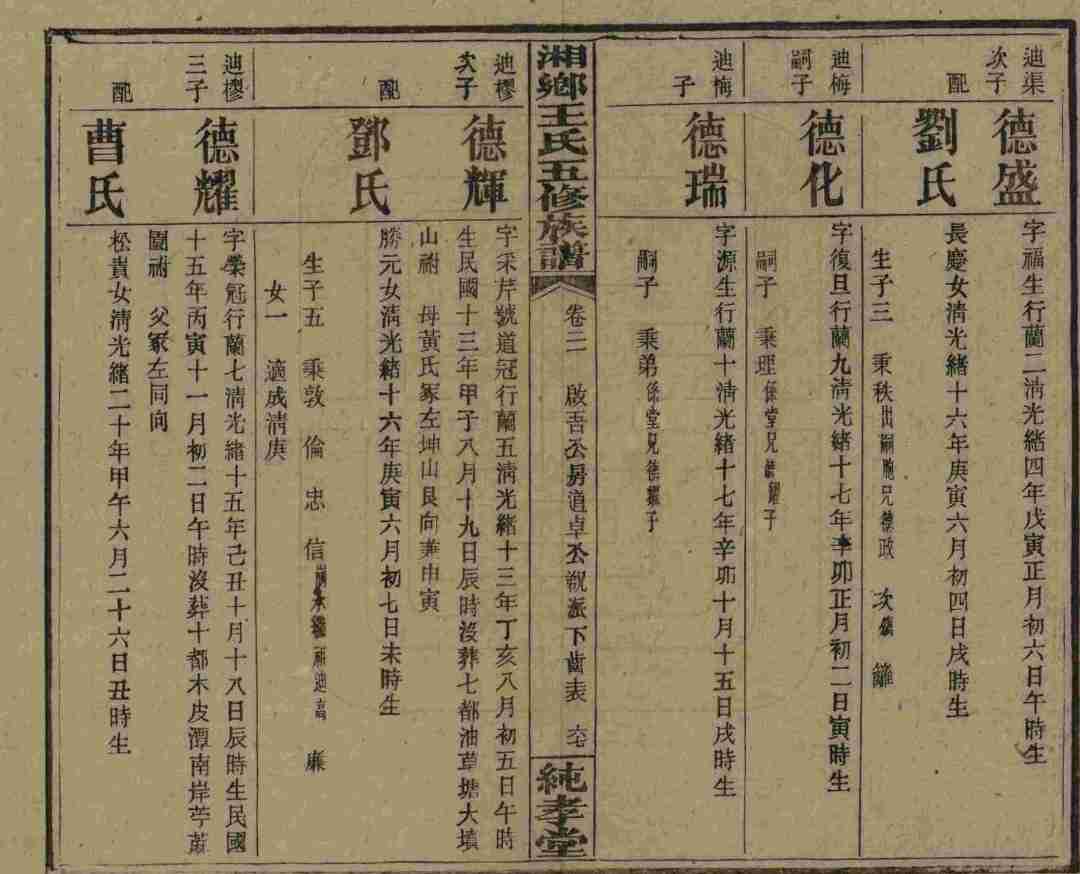 迪渠次子
德盛
字福生行蘭二清光緒四年戊寅正月初六日午時生
配
劉氏
長慶女清光緒十六年庚寅六月初四日戌時生
生子三 秉秩出嗣胞兄德政 次 籬
迪梅嗣子
德化
字復旦行蘭九清光緒十七年辛卯正月初二日寅時生
嗣子 秉理係堂兄德耀子
迪梅子
德瑞
字源生行蘭十清光緒十七年辛卯十月十五日戌時生
嗣子 秉弟係堂兄德耀子
湘鄉王氏五修族譜
卷二 啟吾公房道卓公親派下齒表 六七
純孝堂
迪樛次子
德輝
字采芹號道冠行蘭五清光緒十三年丁亥八月初五日午時
生民國十三年甲子八月十九日辰時沒葬七都油草塘大墳
山祔 母黃氏冢左坤山艮向兼申寅
配
鄧氏
勝元女清光緒十六年庚寅六月初七日未時生
生子五 秉敦 倫 忠 信 廉
女一 適成清庚
迪樛三子
德耀
字榮冠行蘭七清光緒十五年己丑十月十八日辰時生民國
十五年丙寅十一月初二日午時沒葬十都木皮潭南岸苧蔴
園祔 父冢左同向
配
曹氏
松貴女清光緒二十年甲午六月二十六日丑時生